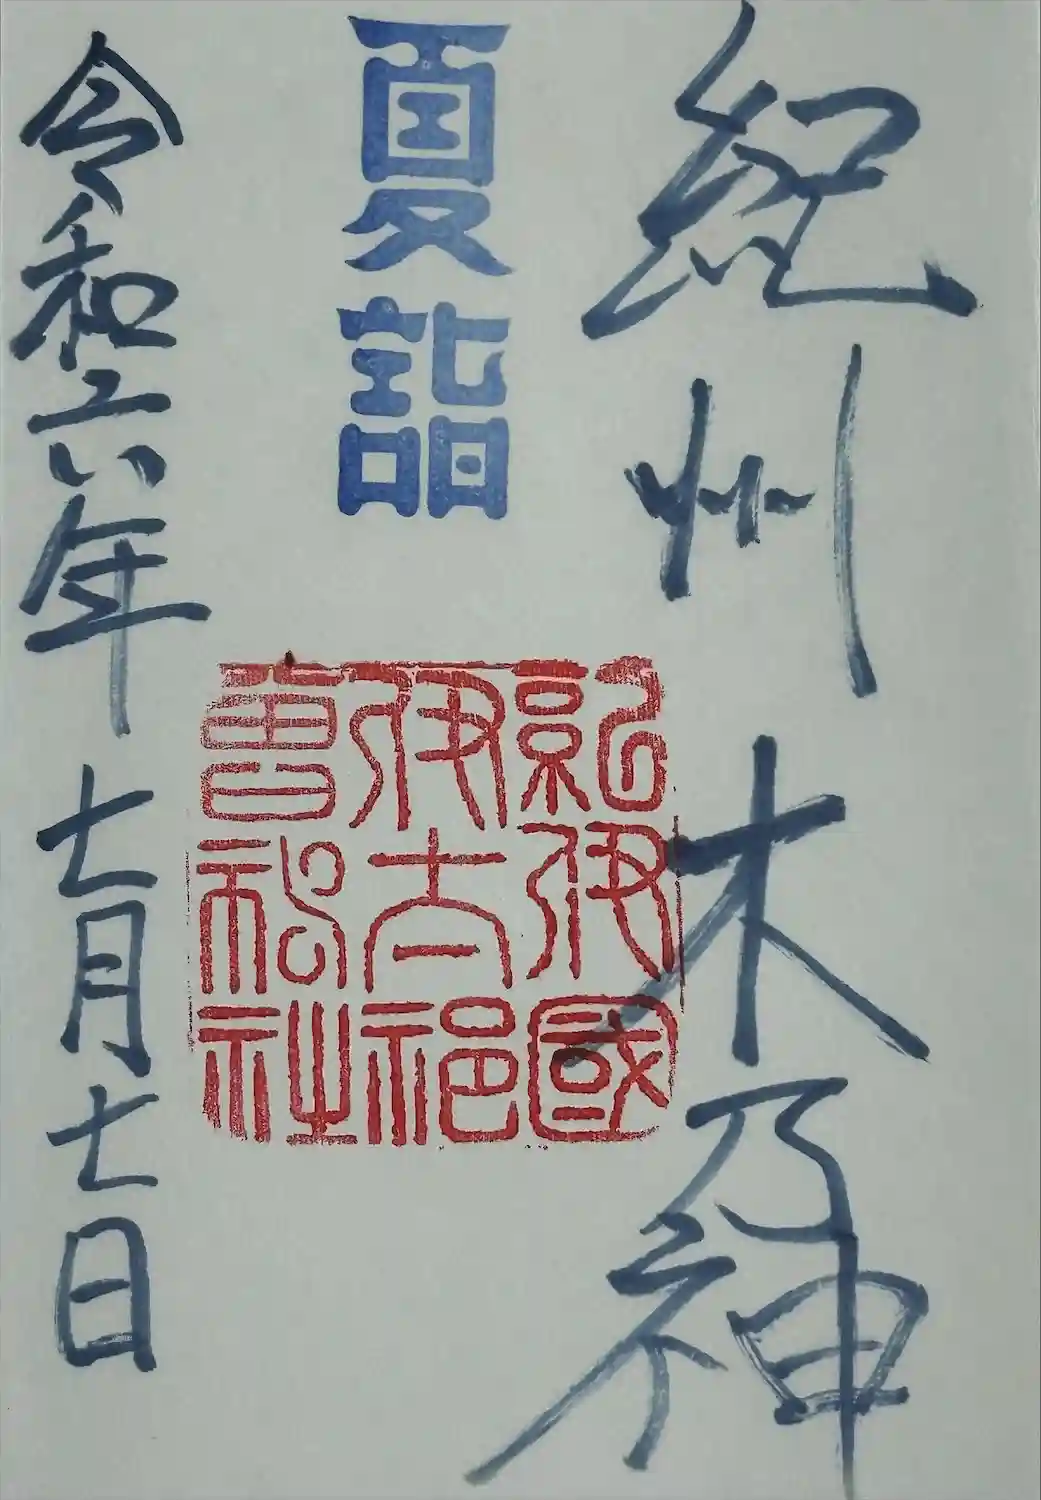 紀州木乃神
夏詣
紀伊國
伊太祁
曽神社
令和六年七月七日